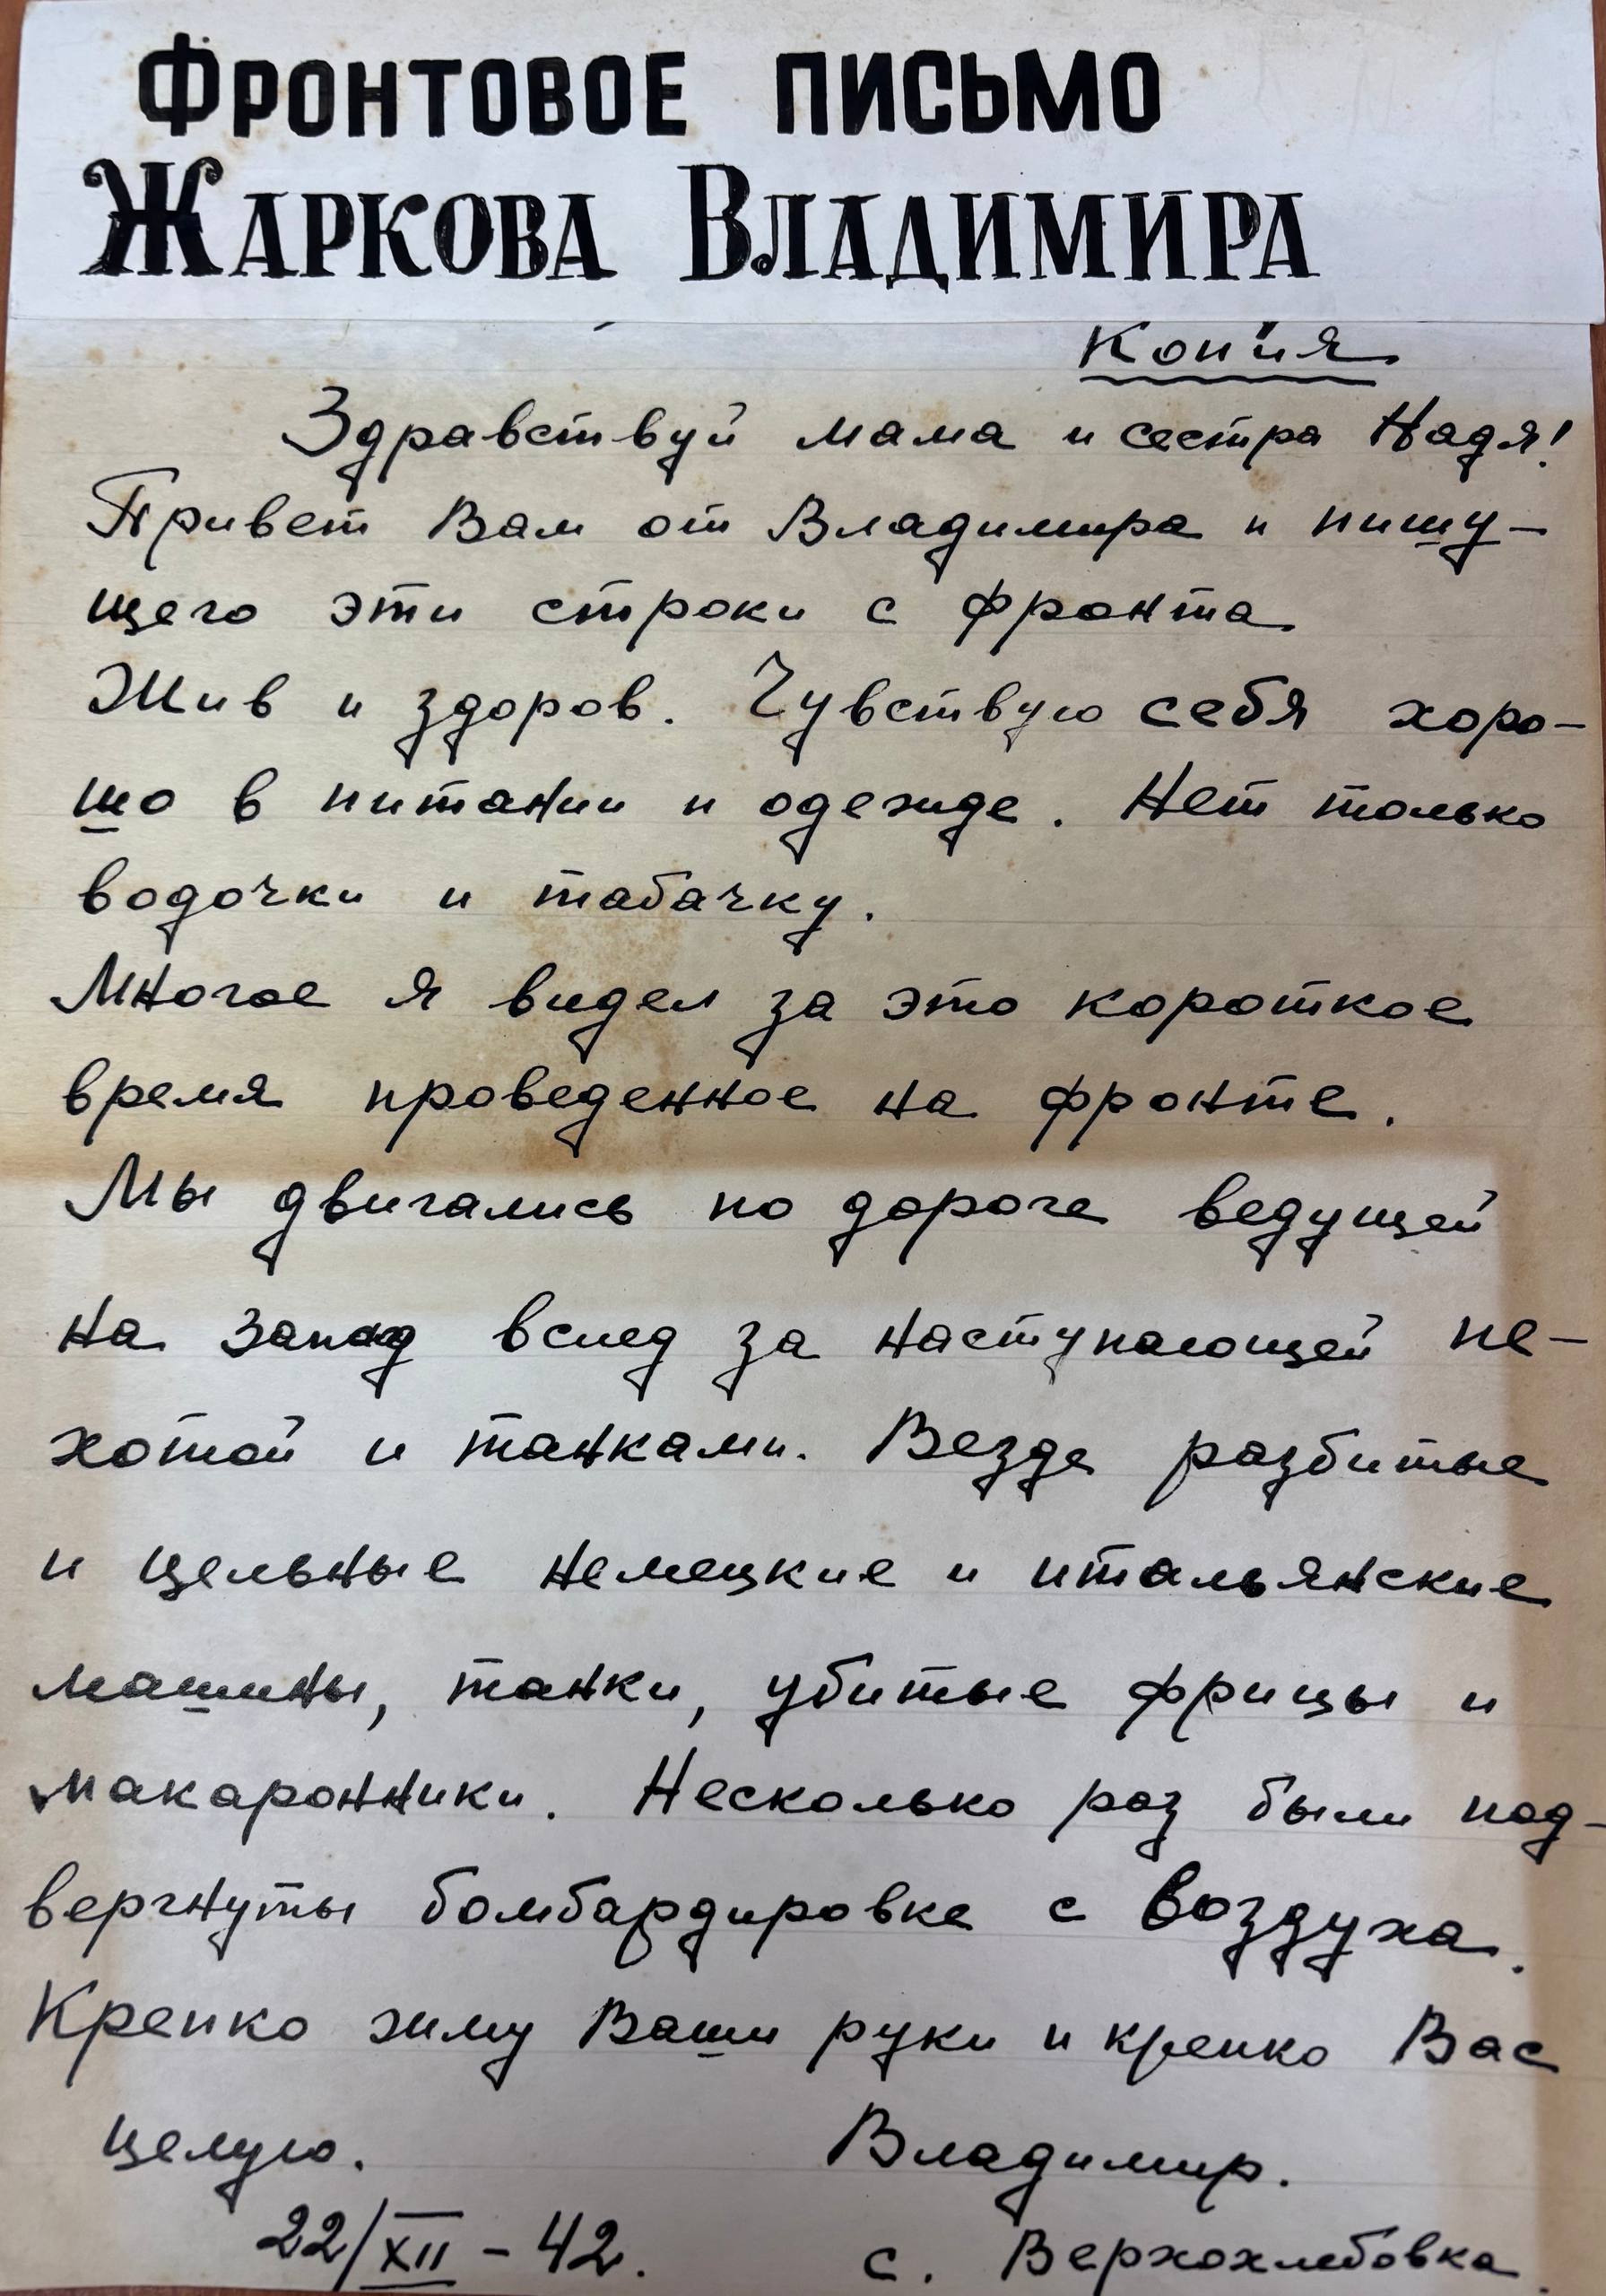 ФРОНТОВОЕ ПИСЬМО
ЖАРКОВА ВЛАДИМИРА
Копия
Здравствуй мама и сестра Надя!
Привет Вам от Владимира и пишу-
щего эти строки с фронта
Жив и здоров. Чувствую себя хоро-
шо в питании и одежде. Нет только
водочки и табачку.
Многое я видел за это короткое
время проведенное на фронте.
Мы двигались по дороге ведущей
на запад вслед за наступающей пе-
хотой и танками. Везде разбитые
и цельные немецкие и итальянские
машины, танки, убитые фрицы и
макаронники. Несколько раз были под-
вергнуты бомбардировке с воздуха.
Крепко жму Ваши руки и крепко Вас
целую. Владимир.
22/XII - 42. с. Верхохлебовка